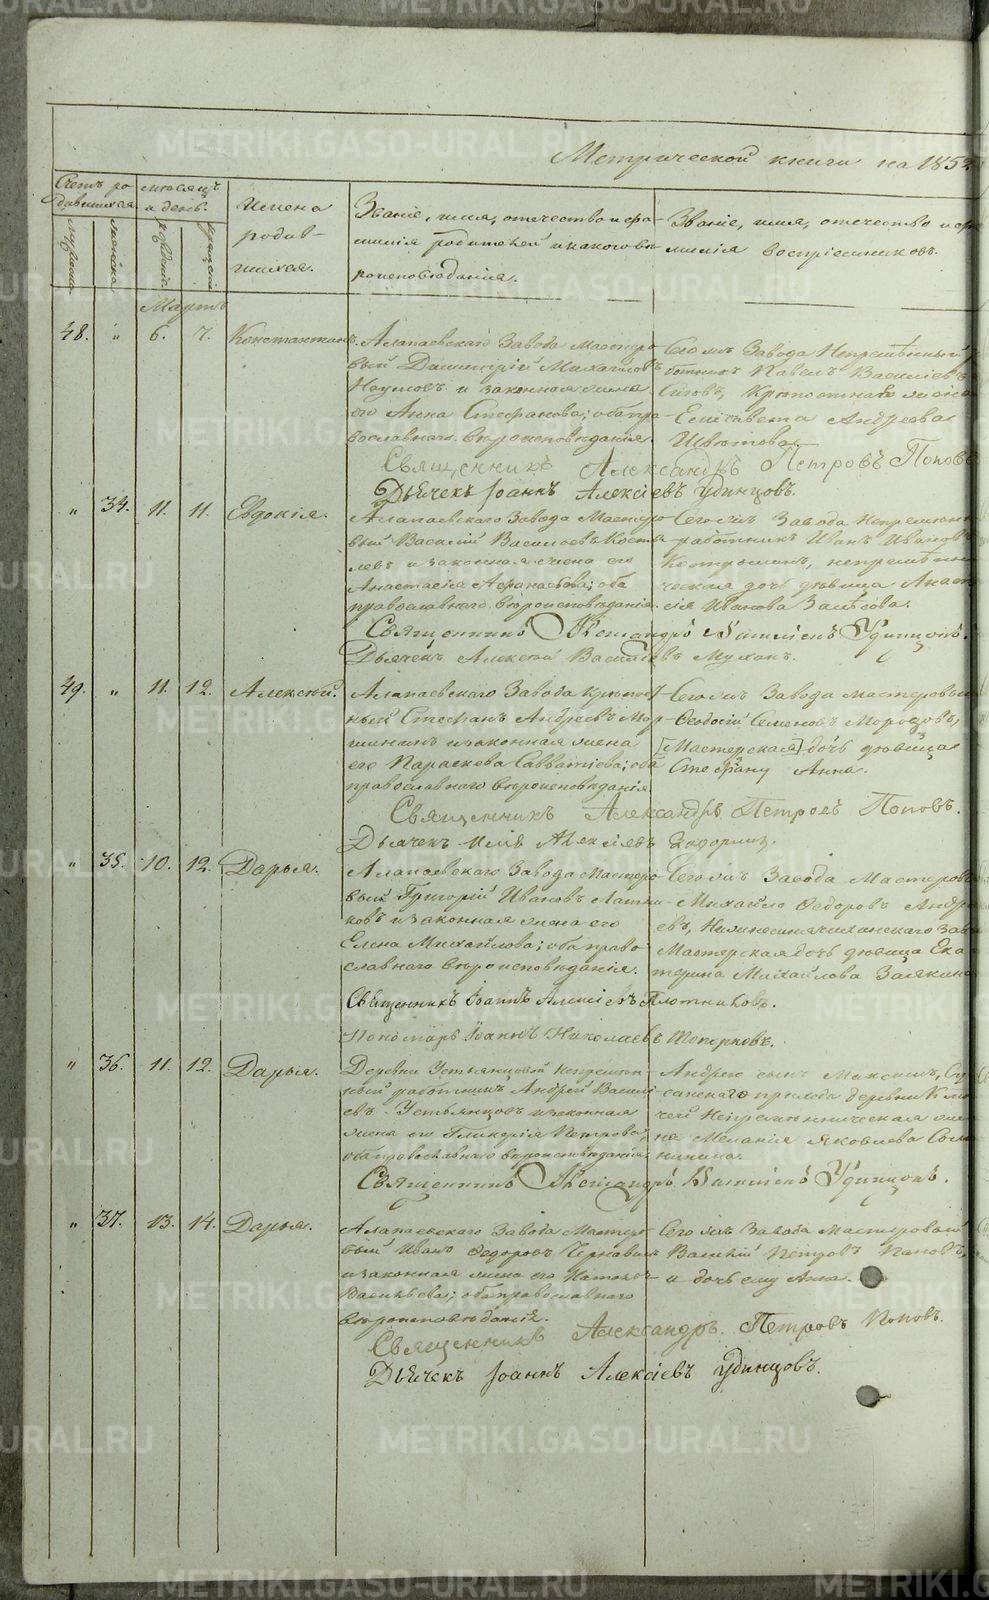 Метрической книги на 185
Счетъ ро
дившихся
мужеска
женска
месяцъ
и день.
рожденія
крещенія
Имена
родив-
шихся.
Званіе, имя, отечество и фа-
милія родителей и какого вѣ
роисповѣданія.
Званіе, имя, отечество и фа
милія воспріемниковъ.
Мартъ
48. " 6. 7. Константинъ.
Алапаевскаго Завода Мастеро
вый Димитрій Михайловъ
Наумовъ и законная жена
его Анна Стефанова; оба пра
вославнаго вѣроисповѣданія.
Того жъ Завода Непремѣнный
Павелъ Васильевъ
жена
Елисавета Андреева
Священникъ Александръ Петровъ Поповъ
Дьячекъ Іоаннъ Алексіевъ Удинцовъ.
" 34. 11. 11. Евдокія.
Алапаевскаго Завода Мастеро
вый Василій Васильевъ Косты
левъ и законная жена его
Анастасія Афанасьева; оба
православнаго вѣроисповѣданія.
Того жъ Завода Непремѣнн
работникъ Иванъ Ивановъ
Костроминъ, непремѣнни
ческая дочь дѣвица Анаста
сія Иванова
Священникъ Александръ Удинцовъ.
Дьячекъ Алексѣй Васильевъ
49. " 11. 12. Алексѣй.
Алапаевскаго Завода Крѣпост
ный Стефанъ Андреевъ Мор
шининъ и законная жена
его Параскева Савватіева; оба
православнаго вѣроисповѣданія
Того жъ Завода мастеровый
Феодосій Семеновъ Морозовъ,
[Мастерская] дочь дѣвица
Стефану Анна.
Священникъ Александръ Петровъ Поповъ.
Дьячекъ Алексіевъ
" 35. 10. 12. Дарья.
Алапаевскаго Завода Мастеро
вый Григорій Ивановъ Латни
ковъ и законная жена его
Елена Михайлова; оба право
славнаго вѣроисповѣданія.
Того жъ Завода Мастерово
Михайло Федоровъ Андре
евъ, Завод
Мастерская дочь дѣвица Ека
терина Михайлова
Священникъ Іоаннъ Алексіевъ Плотниковъ.
Пономарь Іоаннъ Николаевъ Топорковъ.
" 36. 11. 12. Дарья.
Деревни Устьянцовой Непремѣн
ный работникъ Андрей Василь
евъ Устьянцовъ и законная
жена его Гликерія Петрова;
оба православнаго вѣроисповѣданія
Андрея сынъ Максимъ,
санскаго прихода деревни
чей Непремѣнническая же
на Меланія Яковлева
Священникъ Александръ Удинцовъ.
" 37. 13. 14. Дарья.
Алапаевскаго Завода Мастеро
вый Иванъ Федоровъ
и законная жена его Наталья
Васильева; оба православнаго
вѣроисповѣданія.
Того жъ Завода мастеровый
Василій Петровъ Пановъ,
и дочь ему Анна.
Священникъ Александръ Петровъ Поповъ.
Дьячекъ Іоаннъ Алексіевъ Удинцовъ.
METRIKI.GASO-URAL.RU